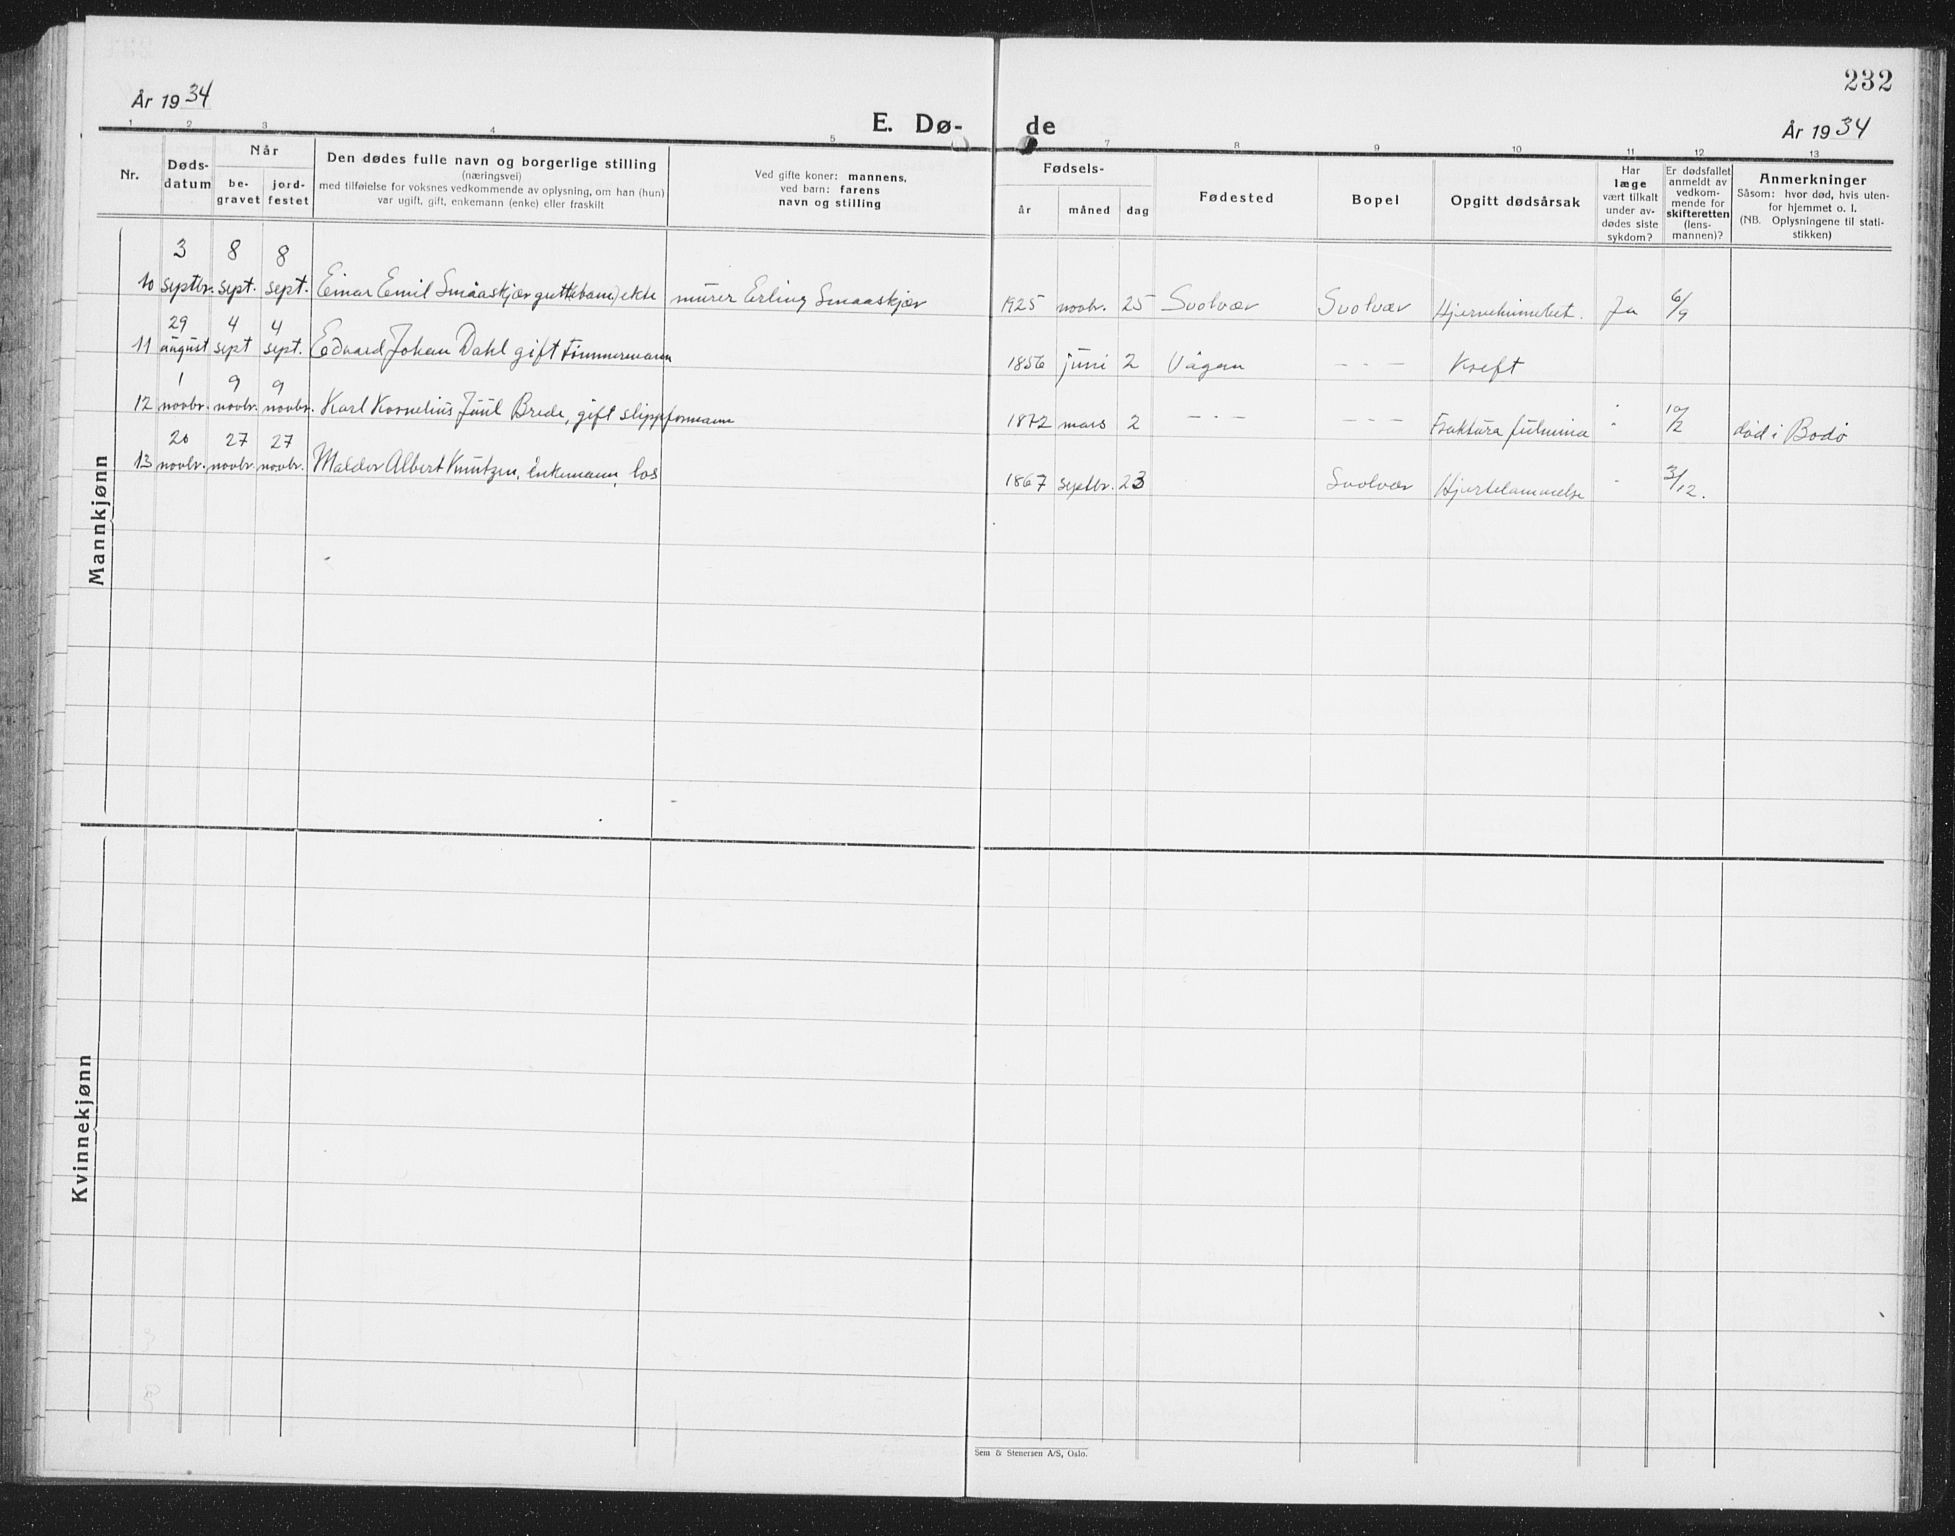 232
År 1934
E. Dø-
de
År 1934
1 2 3 4 5 7 8 9 10 11 12 13
Nr.
Døds-
datum
Når
be-
gravet
jord-
festet
Den dødes fulle navn og borgerlige stilling
(næringsvei)
med tilføielse for voksnes vedkommende av oplysning, om han (hun)
var ugift, gift, enkemann (enke) eller fraskilt
Ved gifte koner: mannens,
ved barn: farens
navn og stilling
Fødsels-
år måned dag
Fødested
Bopel
Opgitt dødsårsak
Har
læge
vært tilkalt
under av-
dødes siste
sykdom?
Er dødsfallet
anmeldt av
vedkom-
mende for
skifteretten
(lens-
mannen)?
Anmerkninger
Såsom: hvor død, hvis uten-
for hjemmet o. l.
(NB. Oplysningene til stati-
stikken)
Mannkjønn
3 8 8
10 septbr. sept. sept. Einar Emil Småaskjær gutt(ebarn) ekte murer Erling Smaaskjær 1925 novbr. 25 Svolvær Svolvær Ja 6/9
29 4 4
11 august sept sept. Edvard Johan Dahl gift tømmermann 1856 juni 2 Vågan - - - Kreft
1 9 9
12 novbr. novbr. novbr. Karl Kornelius Juul Brede, gift slippformann 1872 mars 2 - " - - - - Fraktura " død i Bodø
20 27 27
13 novbr. novbr. novbr. Albert Knutzen, enkemann, los 1867 septbr. 23 Svolvær Hjertelammelse " 3/12.
Kvinnekjønn
Sem & Stenersen A/S, Oslo.